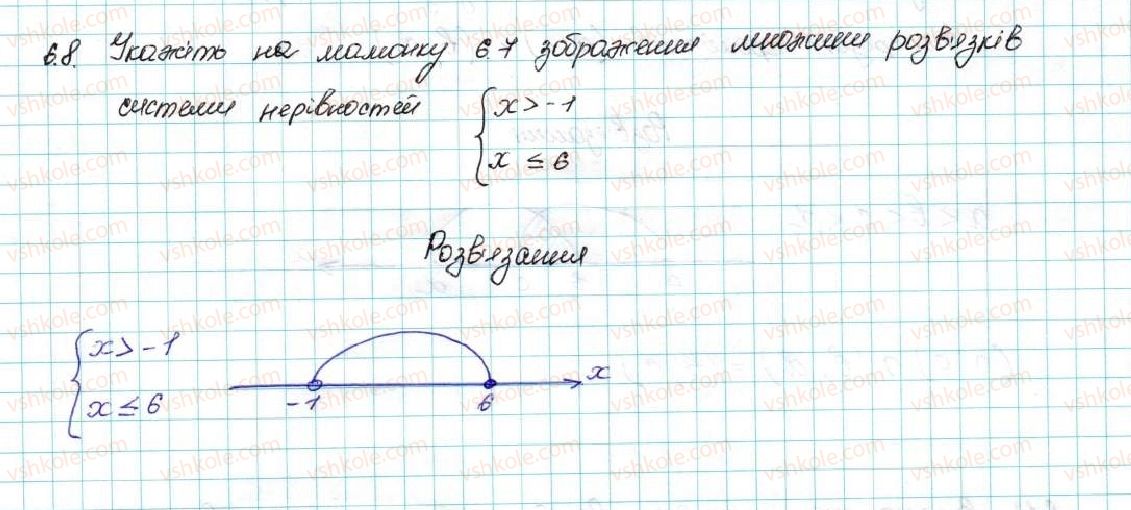 6.8. Укажіть на малюнку 6.7 зображення множини розв'язків
системи нерівностей { x > -1
x ≤ 6
Розв'язання
{ x > -1
x ≤ 6
-1 6 x